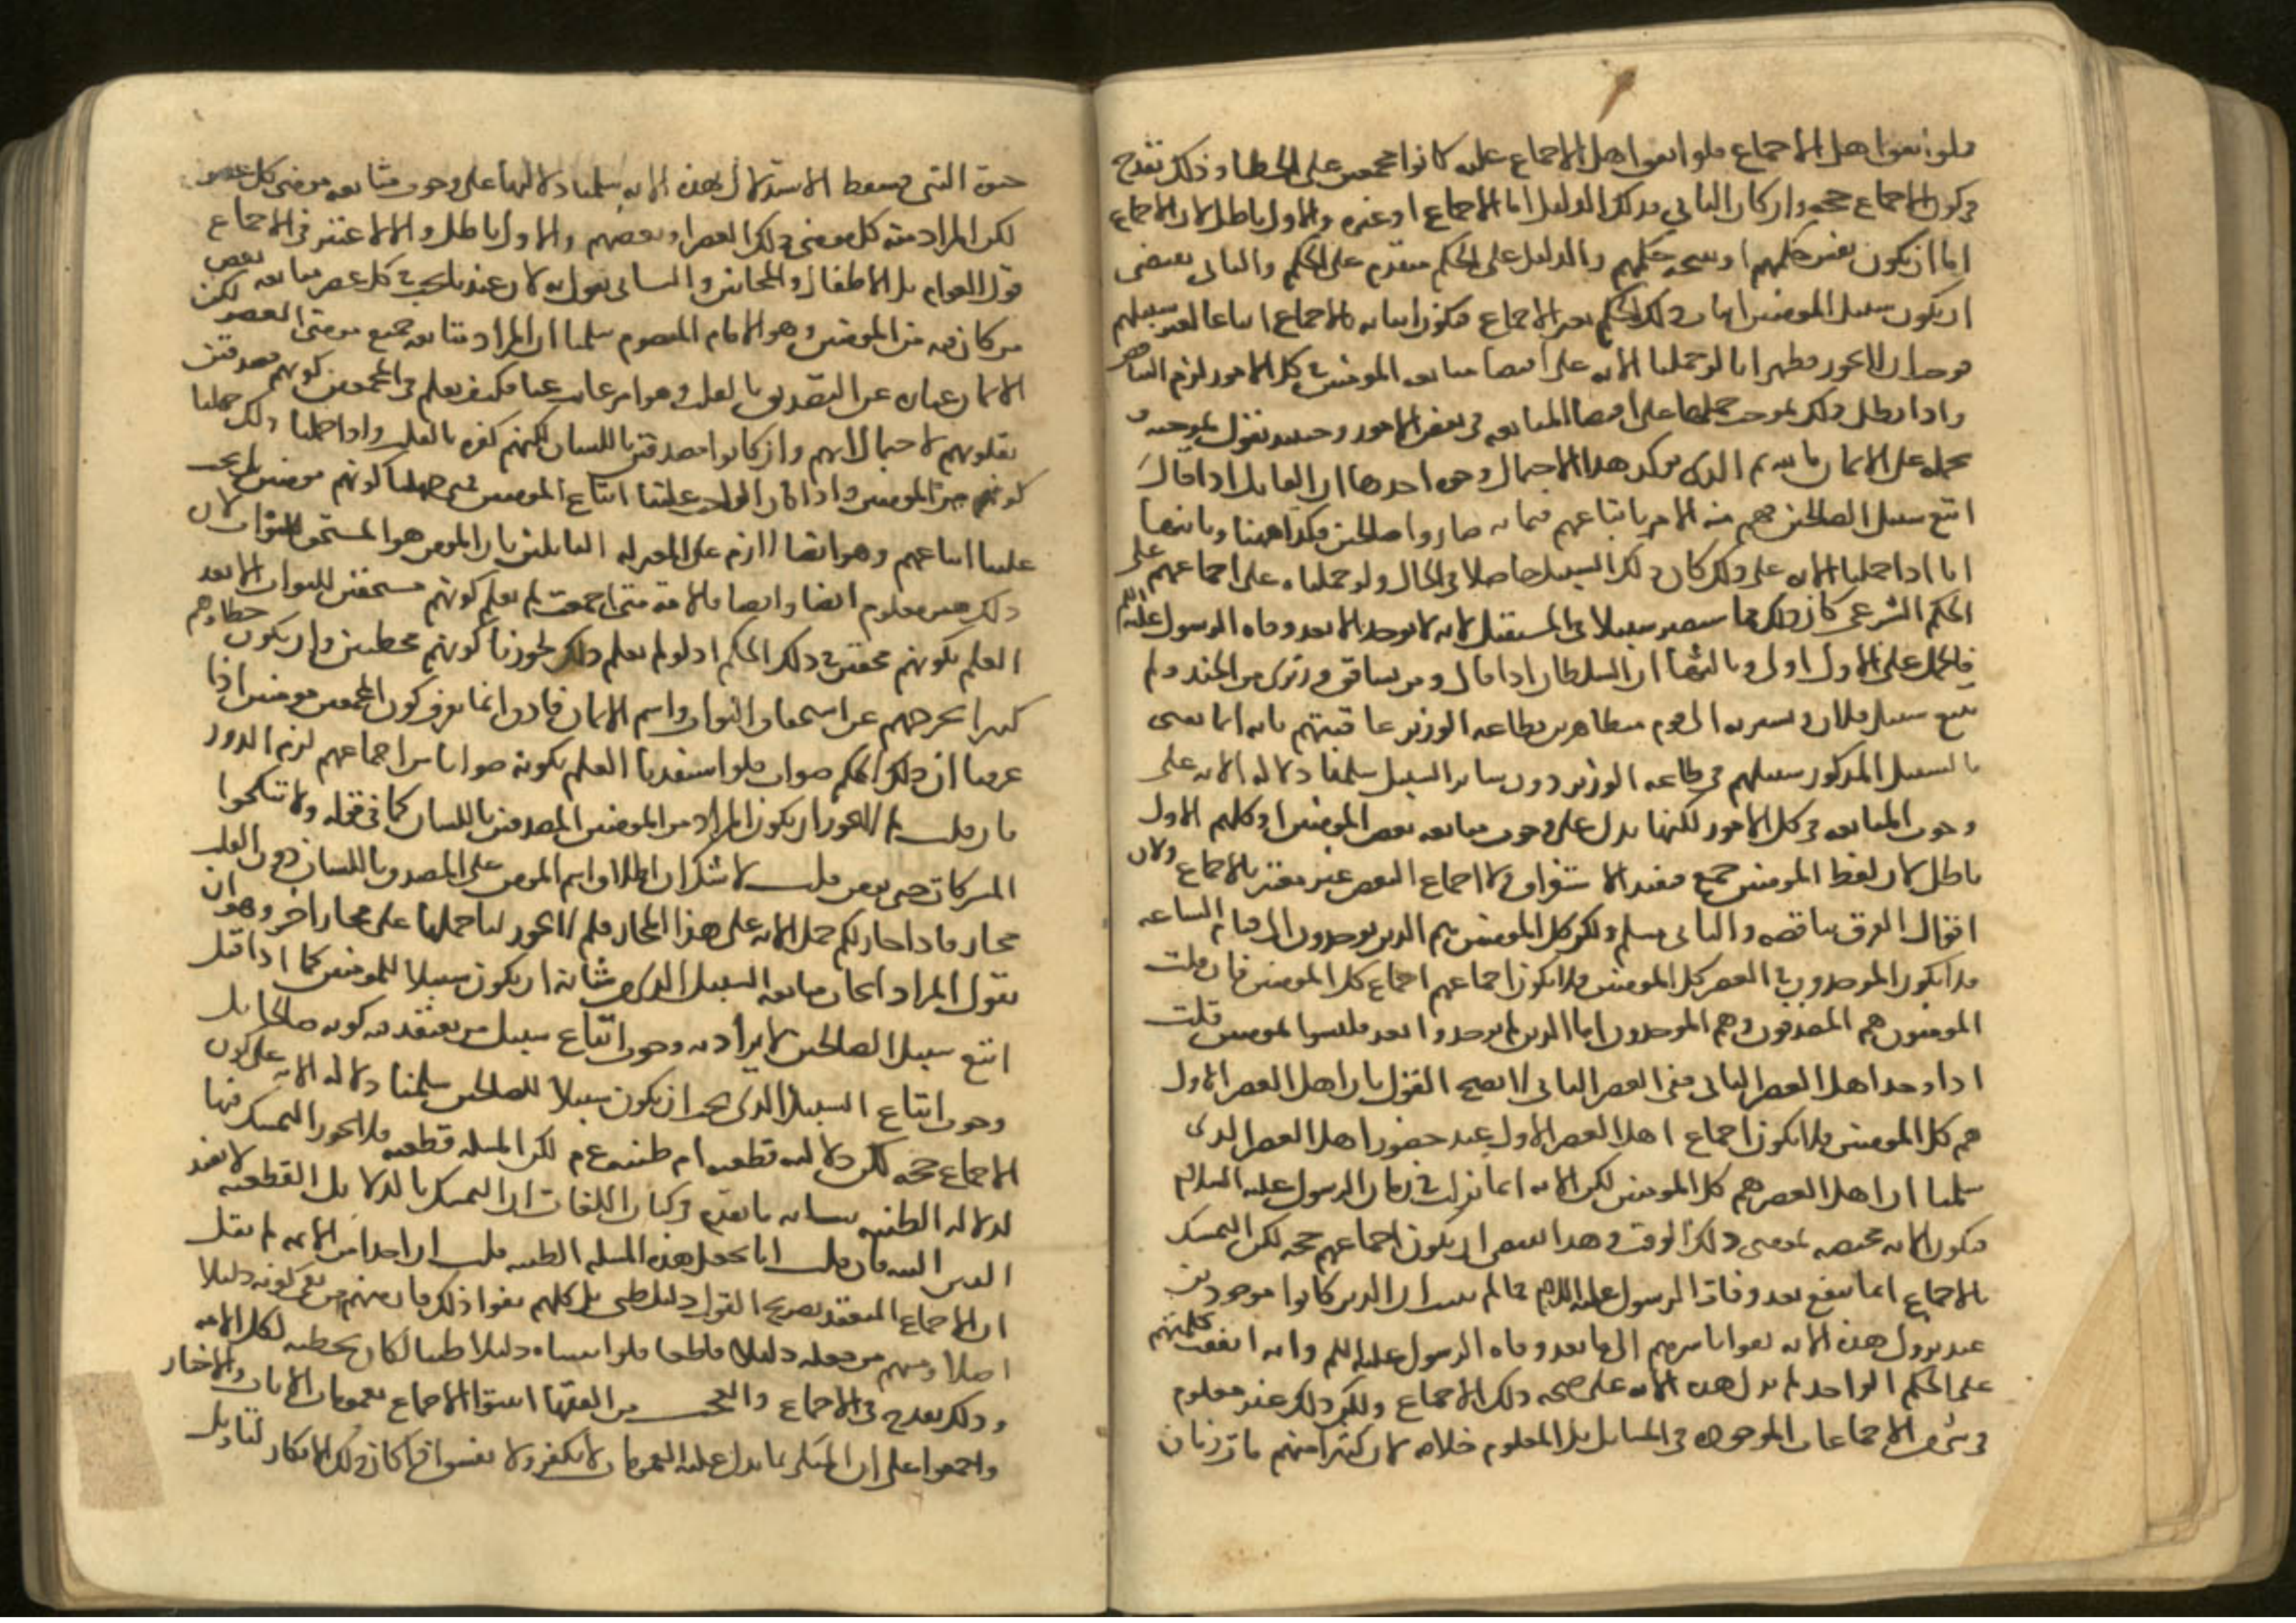 فلو اتفق اهل الاجماع فلو اتفق اهل الاجماع عليه كانوا مجمعين على الخطا وذلك يقدح
في كون الاجماع حجة وان كان الثاني فذلك الدليل اما الاجماع او غيره والاول باطل لان الاجماع
اما ان يكون نفس حكمهم او نتيجة حكمهم والدليل على الحكم متقدم على الحكم والثاني يقتضي
ان يكون سبيل المومنين اثبات ذلك الحكم بغير الاجماع فيكون اثباته بالاجماع اتباعا لغير سبيلهم
فوجب ان لا يجوز فظهر انا لو حملنا الاية على اقتضا متابعة المومنين في كل الامور لزم التناقض
واذا بطل ذلك لم وجب حملها على اقتضا المتابعة في بعض الامور وحينئذ نقول بموجبه و
نحمله على الايمان بالله ثم الذي يوكد هذا الاحتمال وجوه احدها ان القايل اذا قال
اتبع سبيل الصالحين فهم منه الامر باتباعهم فيما به صاروا صالحين فكذا ههنا وثانيها
انا اذا حملنا الاية على ذلك كان ذلك السبيل حاصلا في الحال ولو حملناه على اجماعهم على
الحكم الشرعي كان ذلك مما سيصير سبيلا في المستقبل لانه لا يوجد الا بعد وفاة الرسول عليه السلم
فالحمل على الاول اولى وثالثها ان السلطان اذا قال ومن يشاقق وزيري من الجند ولم
يتبع سبيل فلان ويشير به الى قوم متظاهرين بطاعة الوزير عاقبتهم فانه انما يعني
بالسبيل المذكور سبيلهم في طاعة الوزير دون ساير السبيل سلمنا دلالة الاية على
وجوب المتابعة في كل الامور لكنها تدل على وجوب متابعة بعض المومنين او كلهم الاول
باطل لان لفظ المومنين جمع فيفيد الاستغراق ولا اجماع البعض غير معتبر بالاجماع ولان
اقوال الفرق متناقضه والثاني مسلم ولكن كل المومنين هم الذين يوجدون الى قيام الساعه
فلا يكون الموجودون في العصر كل المومنين فلا يكون اجماعهم اجماع كل المومنين فان قلت
المومنون هم المصدقون وهم الموجدون اما الذين لم يوجدوا بعد فليسوا بمومنين قلت
اذا وجد اهل العصر الثاني ففي العصر الثاني لا يصح القول بان اهل العصر الاول
هم كل المومنين فلا يكون اجماع اهل العصر الاول عند حضور اهل العصر الذي
سلمنا ان اهل العصر هم كل المومنين لكن الاية انما نزلت في زمان الرسول عليه السلام
فتكون الاية مختصه بمومني ذلك الوقت وهذا يقتضي ان يكون اجماعهم حجه لكن التمسك
بالاجماع انما ينفع بعد وفاة الرسول عليه السلم فما لم يثبت ان الذين كانوا موجودين
عند نزول هذه الاية بقوا باسرهم الى ما بعد وفاة الرسول عليه السلم وانه اتفقت كلمتهم
على الحكم الواحد لم تدل هذه الاية على صحة ذلك الاجماع ولكن ذلك غير معلوم
في شي من الاجماعات الموجوده في المسايل بل المعلوم خلافه لان كثيرا منهم مات زمان
حيوة النبي فسقط الاستدلال بهذه الاية سلمنا دلالتها على وجوب متابعة مومني كل عصر
لكن المراد منه كل مومني ذلك العصر او بعضهم والاول باطل والا لاعتبر في الاجماع
قول العوام بل الاطفال والمجانين والثاني نقول به لان عندنا يجب في كل عصر متابعة بعض
من كان فيه من المومنين وهو الامام المعصوم سلمنا ان المراد متابعة جميع مومني العصر لكن
الايمان عبارة عن التصديق بالقلب وهو امر غايب عنا فكيف يعلم في المجمعين كونهم مصدقين
بقلوبهم لاحتمال انهم وان كانوا مصدقين باللسان لكنهم كفره بالقلب واذا جهلنا ذلك جهلنا
كونهم من المومنين واذا كان الواجب علينا اتباع المومنين فمتى جهلنا كونهم مومنين لم يجب
علينا اتباعهم وهو ايضا لازم على المعتزله القايلين بان المومن هو المستحق للثواب لان
ذلك غير معلوم ايضا وايضا فالامة متى اجمعت لم يعلم كونهم مستحقين للثواب الا بعد
العلم بكونهم محقين في ذلك الحكم اذ لو لم يعلم ذلك لجوزنا كونهم مخطين وان يكون خطاوهم
كثيرا يخرجهم عن استحقاق الثواب واسم الايمان فاذن انما نعرف كون المجمعين مومنين اذا
عرفنا ان ذلك الحكم صواب فلو استفدنا العلم بكونه صوابا من اجماعهم لزم الدور
فان قلت لم لا يجوز ان يكون المراد من المومنين المصدقين باللسان كما في قوله ولا تنكحوا
المشركات حتى يومن قلت لا شك ان اطلاق اسم المومن على المصدق باللسان دون القلب
مجاز فاذا جاز لكم حمل الاية على هذا المجاز فلم لا يجوز لنا حملها على مجاز اخر وهو ان
نقول المراد ايجاب متابعة السبيل الذي من شانه ان يكون سبيلا للمومنين كما اذا قيل
اتبع سبيل الصالحين لا يراد به وجوب اتباع سبيل من يعتقد فيه كونه صالحا بل
وجوب اتباع السبيل الذي يجب ان يكون سبيلا للصالحين سلمنا دلالة الاية على كون
الاجماع حجه لكن دلاله قطعيه ام ظنيه ع م لكن المسله قطعيه فلا يجوز التمسك فيها
بالدلاله الظنيه بيانه ما تقدم في كتاب اللغات ان التمسك بالدلايل القطعيه لا يفيد
اليقين البته فان قلت انا نجعل هذه المسله الظنيه قلت ان احدا من الامه لم يقل
ان الاجماع المنعقد بصريح القول دليل ظني بل كلهم نفوا ذلك فان منهم من نفى كونه دليلا
اصلا ومنهم من جعله دليلا قاطعا فلو اثبتناه دليلا ظنيا لكان تخطيه لكل الامه
وذلك يقدح في الاجماع والعجب من الفقها اثبتوا الاجماع بعمومات الايات والاخبار
واجمعوا على ان المنكر لما تدل عليه العمومات لا يكفر ولا يفسق اذا كان ذلك الانكار لتاويل